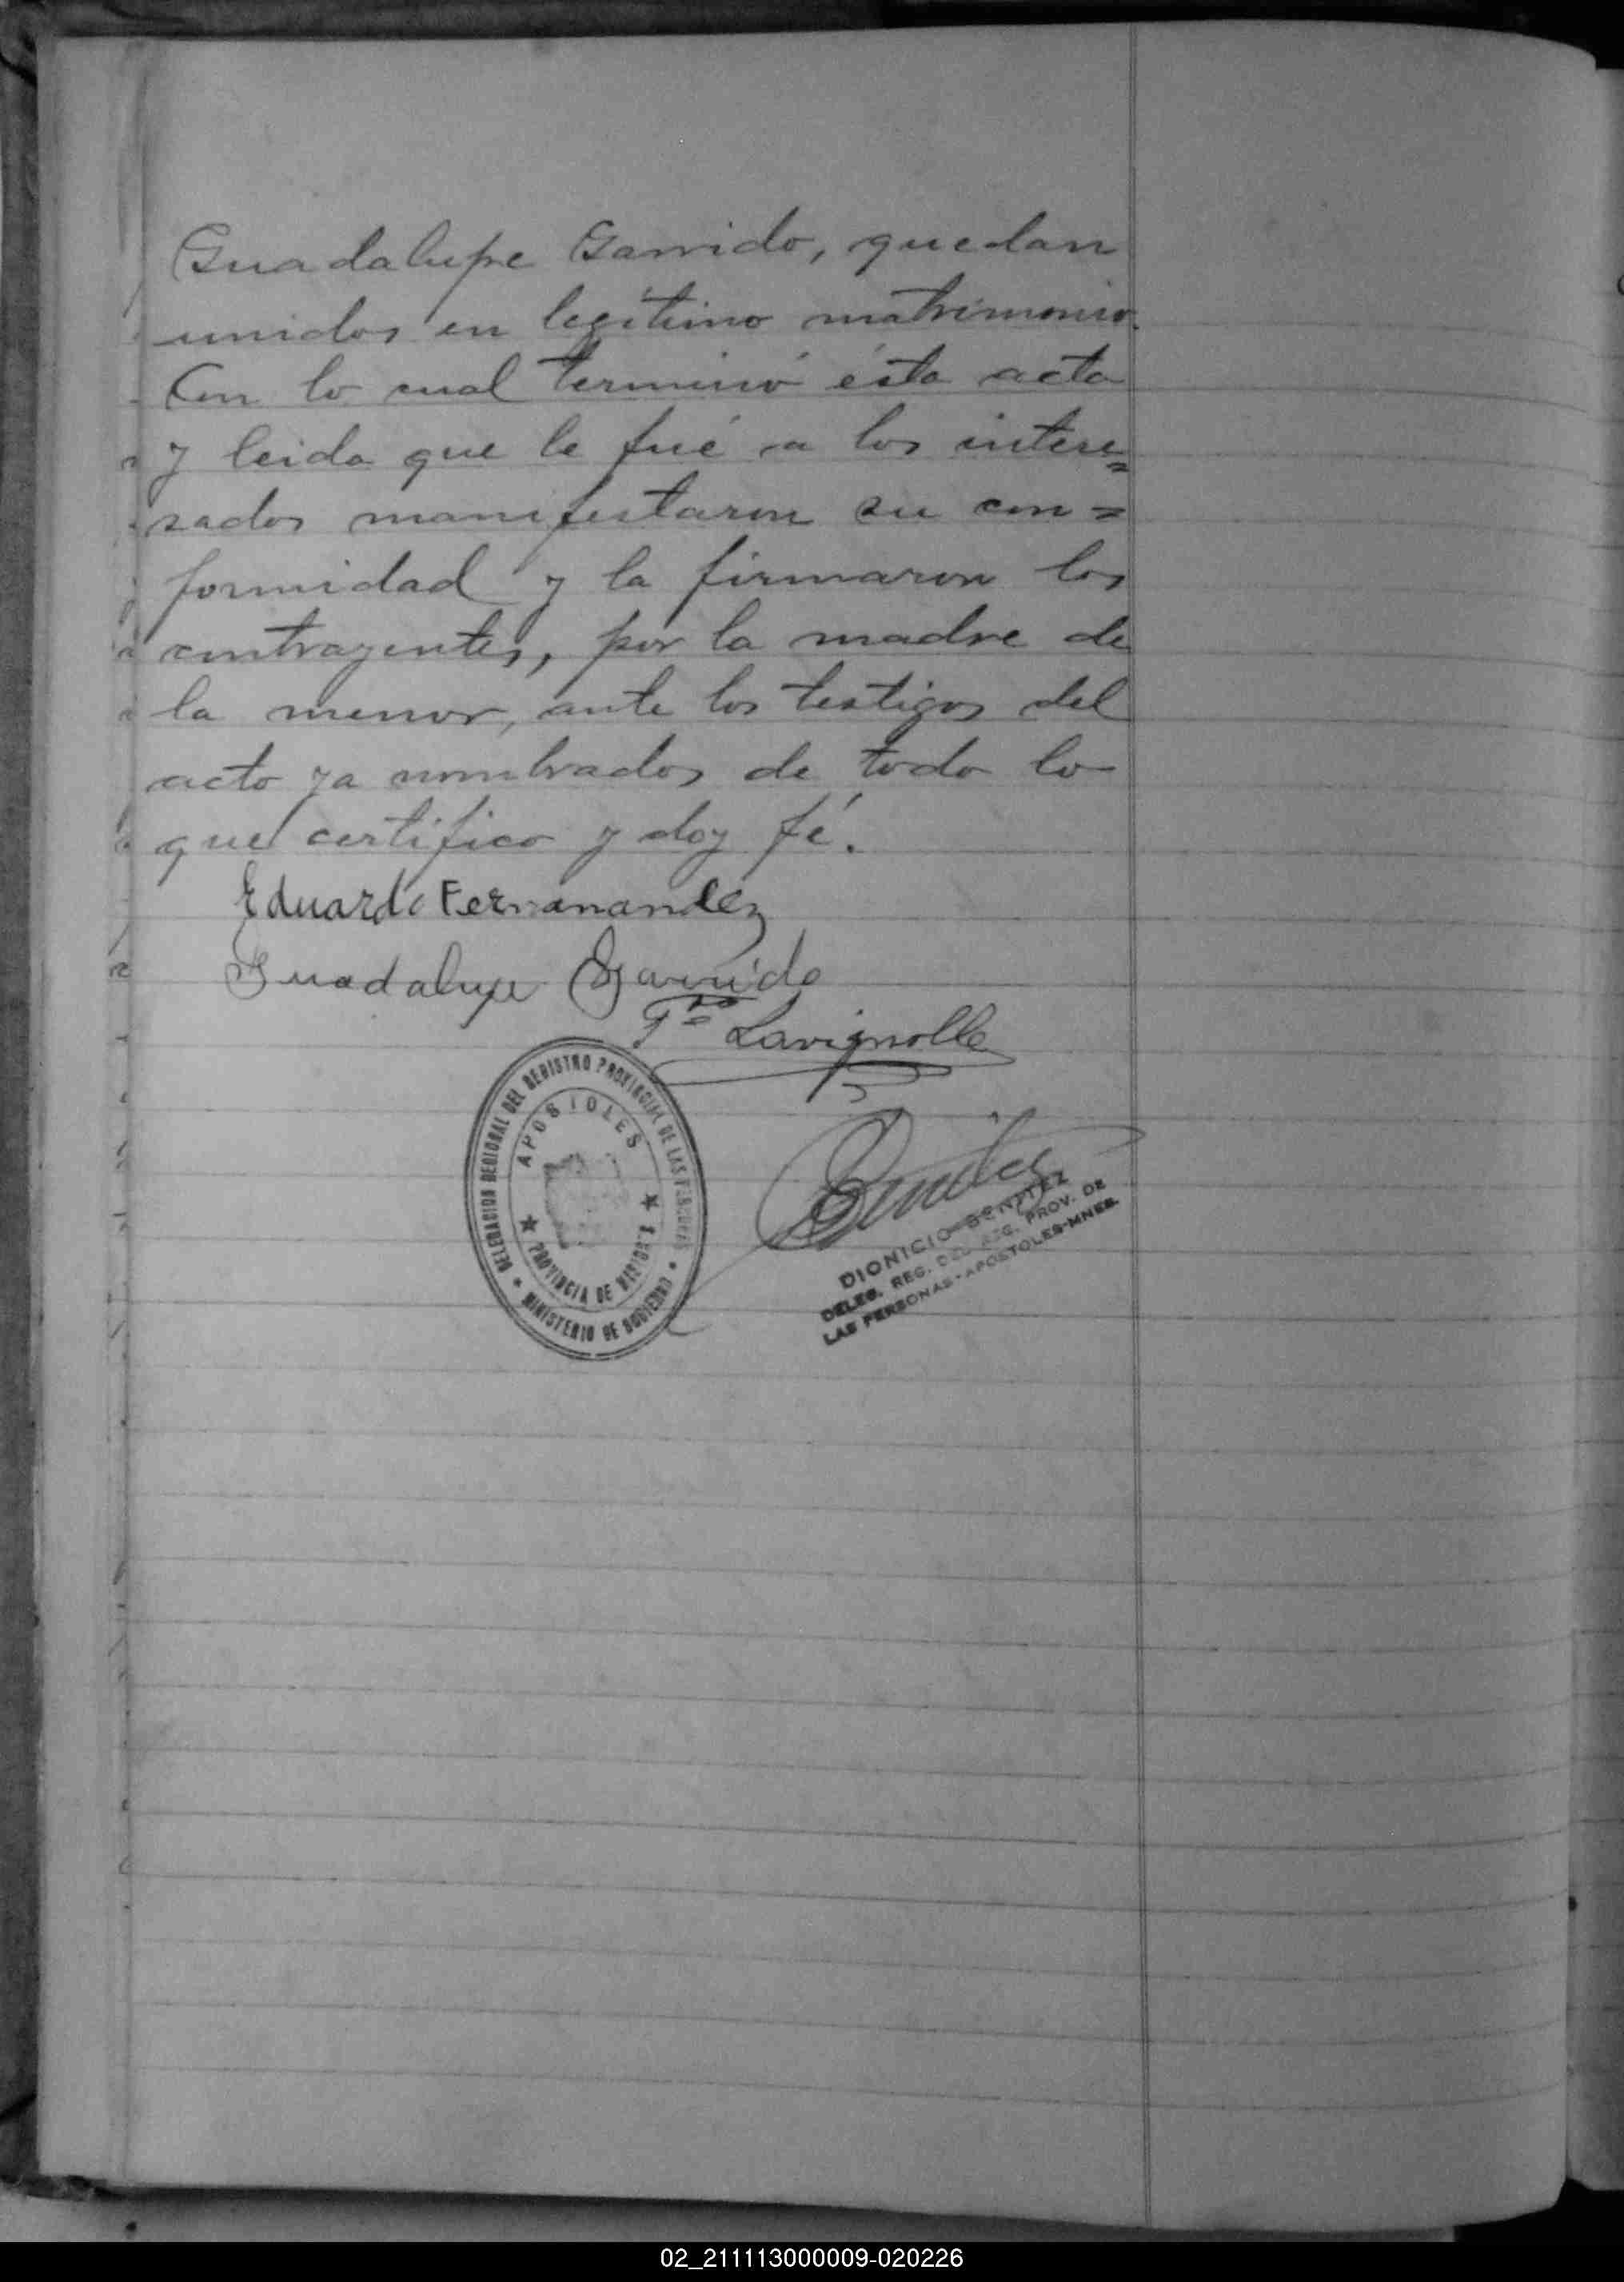 Guadalupe Garrido, quedan
unidos en legítimo matrimonio.
Con lo cual terminó ésta acta
y leida que le fué a los intere=
sados manifestaron su con=
formidad y la firmaron los
contrayentes, por la madre de
la menor, ante los testigos del
acto ya nombrados de todo lo
que certifico y doy fé.
Eduardo Fernanandez
Guadalupe Garrido
Lavignolle
DELEGACION REGIONAL DEL REGISTRO PROVINCIAL DE LAS PERSONAS
APOSTOLES
PROVINCIA DE MISIONES
MINISTERIO DE GOBIERNO
Benitez
DIONICIO BENITEZ
DELEG. REG. DEL REG. PROV. DE
LAS PERSONAS - APOSTOLES-MNES.
02_211113000009-020226